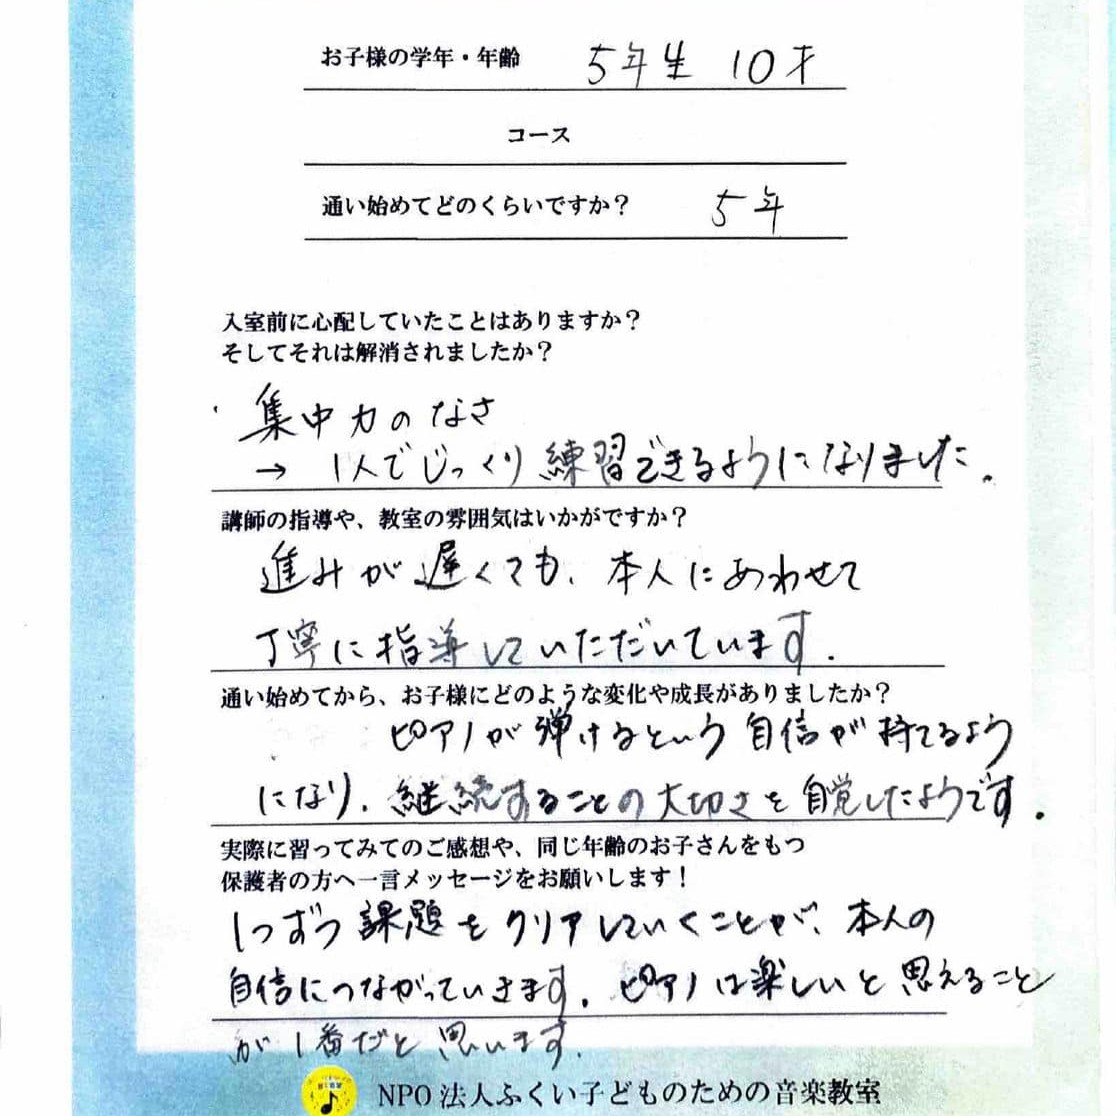 お子様の学年・年齢 5年生 10才
コース
通い始めてどのくらいですか? 5年
入室前に心配していたことはありますか?
そしてそれは解消されましたか?
・集中力のなさ
→ 1人でじっくり練習できるようになりました.
講師の指導や、教室の雰囲気はいかがですか?
進みが遅くても、本人にあわせて
丁寧に指導していただいています.
通い始めてから、お子様にどのような変化や成長がありましたか?
ピアノが弾けるという自信が持てるよう
になり、継続することの大切さを自覚したようです.
実際に習ってみてのご感想や、同じ年齢のお子さんをもつ
保護者の方へ一言メッセージをお願いします!
1つずつ課題をクリアしていくことが、本人の
自信につながっていきます. ピアノは楽しいと思えること
が1番だと思います.
NPO法人ふくい子どものための音楽教室